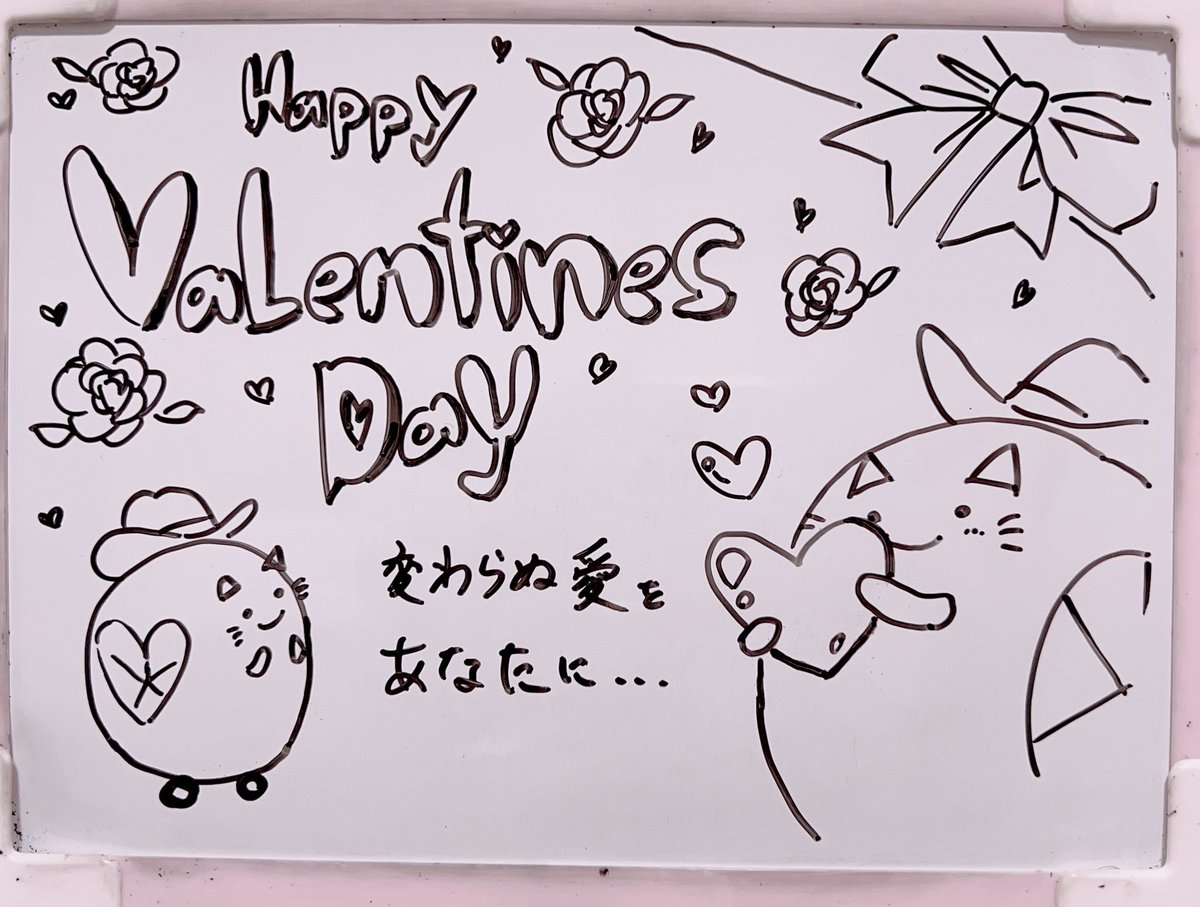 Happy
Valentines
Day
変わらぬ愛を
あなたに...